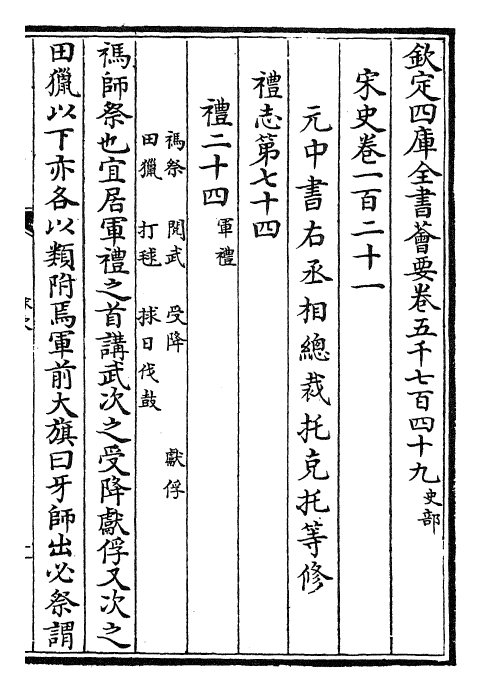 欽定四庫全書薈要卷五千七百四十九史部
宋史卷一百二十一
元中書右丞相總裁托克托等修
禮志第七十四
禮二十四軍禮
禡祭 閱武 受降 獻俘
田獵 打毬 捄日伐鼓
禡師祭也宜居軍禮之首講武次之受降獻俘又次之
田獵以下亦各以類附焉軍前大旗曰牙師出必祭謂